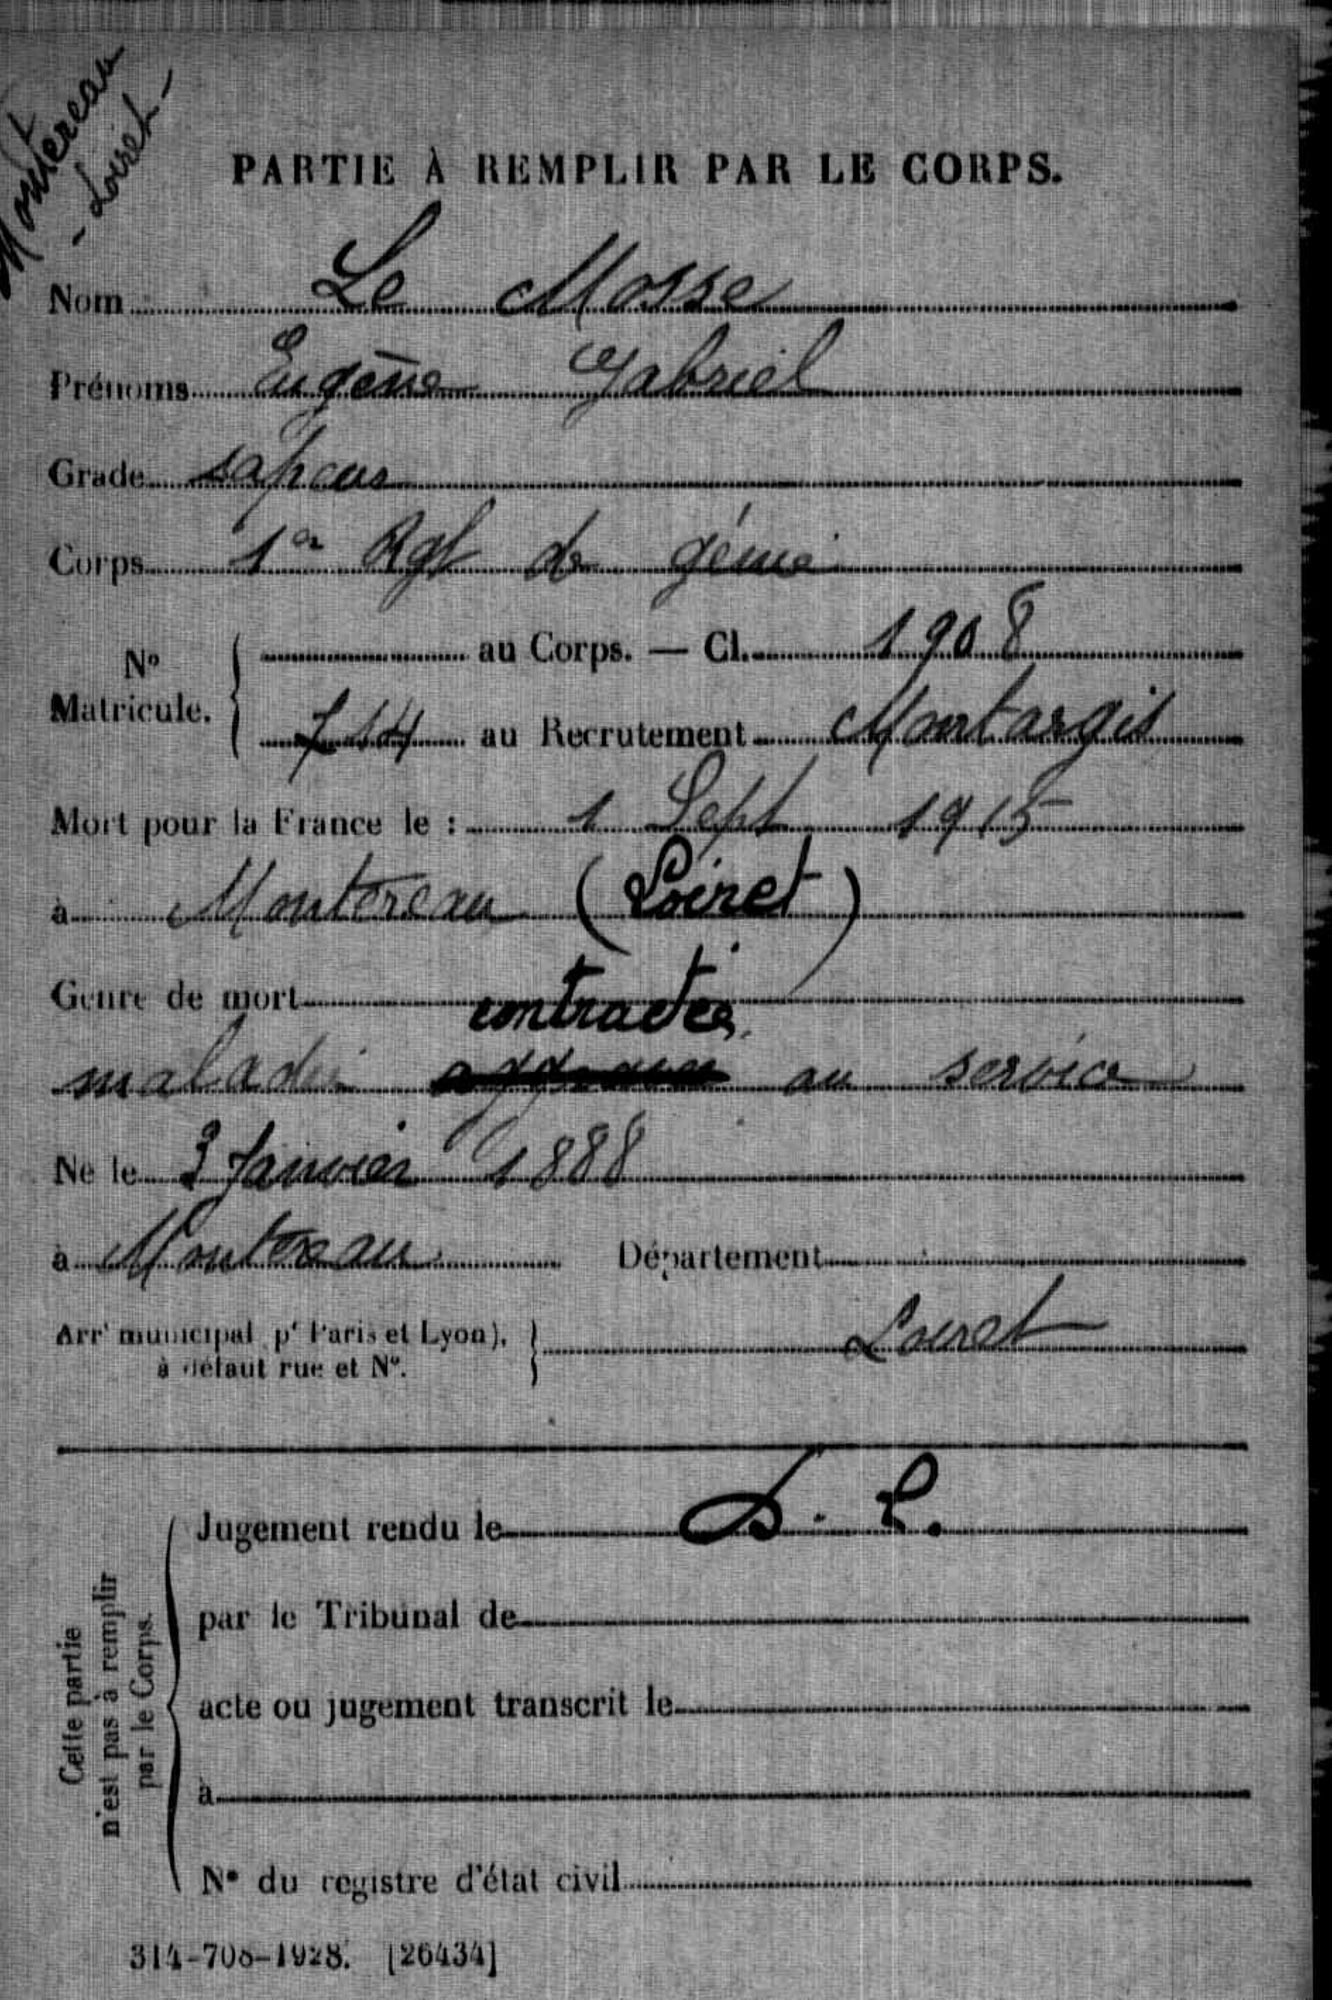 Montereau
- Loiret -
PARTIE À REMPLIR PAR LE CORPS.
Nom Le Mosse
Prénoms Eugène Gabriel
Grade sapeur
Corps 1er Rgt de génie
No Matricule. { au Corps. — Cl. 1908
714 au Recrutement Montargis
Mort pour la France le : 1 Sept 1915
à Montereau (Loiret)
Genre de mort contractée
maladie au service
Né le 3 Janvier 1888
à Montereau Département
Arrt municipal pr Paris et Lyon), à défaut rue et No. } Loiret
Cette partie n'est pas à remplir par le Corps.
Jugement rendu le D. L.
par le Tribunal de
acte ou jugement transcrit le
à
No du registre d'état civil
314-708-1928. [26434]